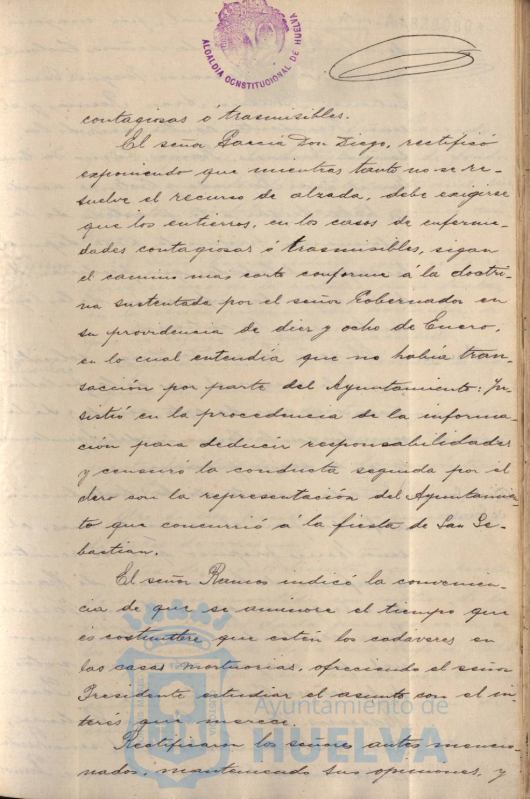 ALCALDIA CONSTITUCIONAL DE HUELVA
contagiosas ó trasmisibles.
El señor Garcia Don Diego, rectificó
exponiendo que mientras tanto no se re-
suelve el recurso de alzada, debe exigirse
que los entierros, en los casos de enferme-
dades contagiosas ó trasmisibles, sigan
el camino mas corto conforme á la doctri-
na sustentada por el señor Gobernador en
su providencia de diez y ocho de Enero,
en lo cual entendia que no habia tran-
sacción por parte del Ayuntamiento: In-
sistió en la procedencia de la informa-
ción para deducir responsabilidades
y censuró la conducta seguida por el
clero con la representación del Ayuntamien-
to que concurrió á la fiesta de San Se-
bastian.
El señor Ramos indicó la convenien-
cia de que se aminore el tiempo que
es costumbre que estén los cadáveres en
las casas mortuorias, ofreciendo el señor
Presidente estudiar el asunto con el in-
terés que merece.
Rectificaron los señores antes mencio-
nados, manteniendo sus opiniones, y
Ayuntamiento de
HUELVA